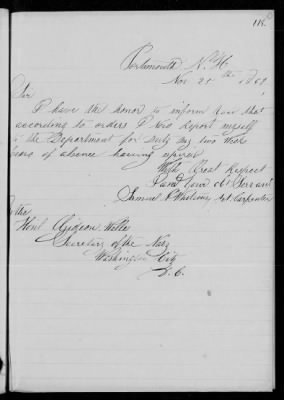 Portsmouth N.H
Nov 25th 186
Sir
I have the honor to inform you that
according to orders I now Report myself
the Department for Duty my two Weeks
of absence having expired
With Great Respect
I am your obt Servant
Samuel N Whitehouse, Act Carpenter
To the
Honl Gideon Welles
Secretary of the Navy
Washington City
D.C.